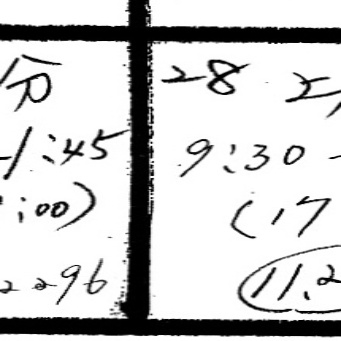 分
1:45
:00)
2296
28
9:30 -
(17
11.2